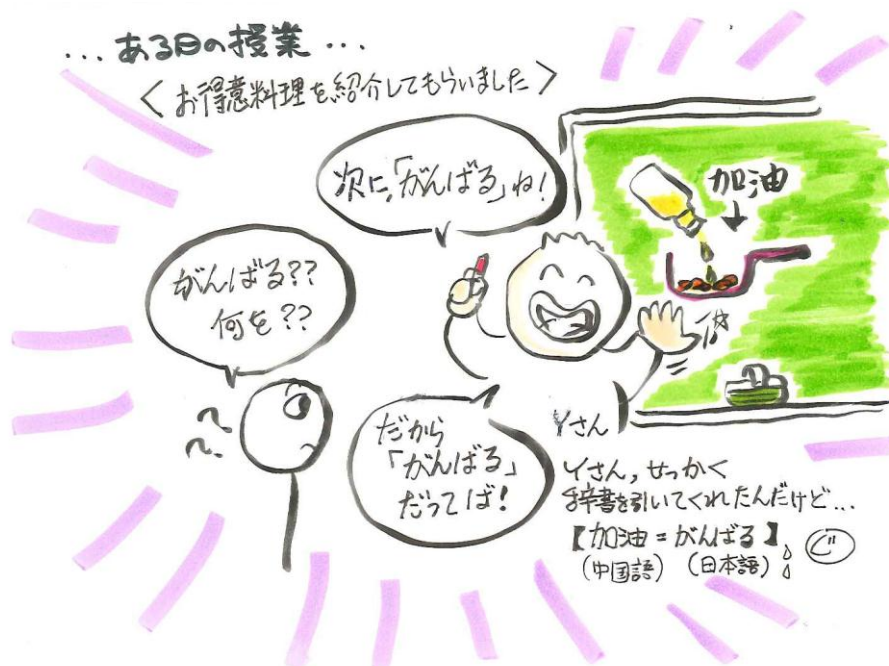 ...ある日の授業...
＜お得意料理を紹介してもらいました＞
次に、「がんばる」ね！
加油
↓
がんばる??
何を??
だから
「がんばる」
だってば！
Yさん
Yさん,せっかく
辞書を引いてくれたんだけど...
【加油=がんばる】
(中国語) (日本語)